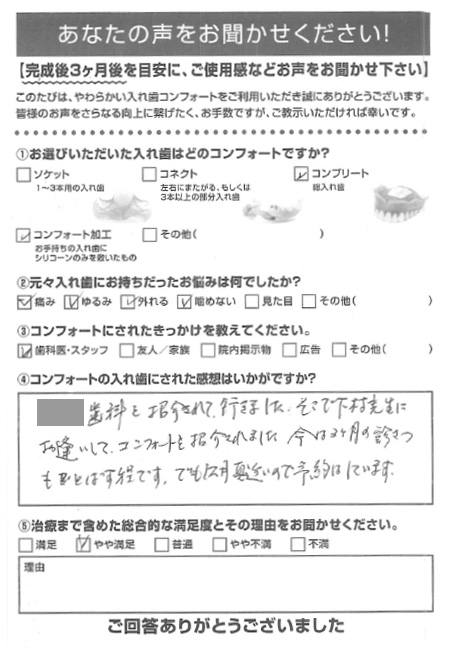 あなたの声をお聞かせください!
【完成後3ヶ月後を目安に、ご使用感などお声をお聞かせ下さい】
このたびは、やわらかい入れ歯コンフォートをご利用いただき誠にありがとうございます。
皆様のお声をさらなる向上に繋げたく、お手数ですが、ご教示いただければ幸いです。
①お選びいただいた入れ歯はどのコンフォートですか?
□ソケット □コネクト ☑コンプリート
1〜3本用の入れ歯 左右にまたがる、もしくは 総入れ歯
3本以上の部分入れ歯
☑コンフォート加工 □その他( )
お手持ちの入れ歯に
シリコーンのみを敷いたもの
②元々入れ歯にお持ちだったお悩みは何でしたか?
☑痛み ☑ゆるみ ☑外れる ☑噛めない □見た目 □その他( )
③コンフォートにされたきっかけを教えてください。
☑歯科医・スタッフ □友人/家族 □院内掲示物 □広告 □その他( )
④コンフォートの入れ歯にされた感想はいかがですか?
歯科を紹介されて、行きました。そこで下村先生に
お逢いして、コンフォートを紹介されました 今は3ヶ月の診さつ
です。でも 月 近いので予約はしています。
⑤治療まで含めた総合的な満足度とその理由をお聞かせください。
□満足 ☑やや満足 □普通 □やや不満 □不満
理由
ご回答ありがとうございました